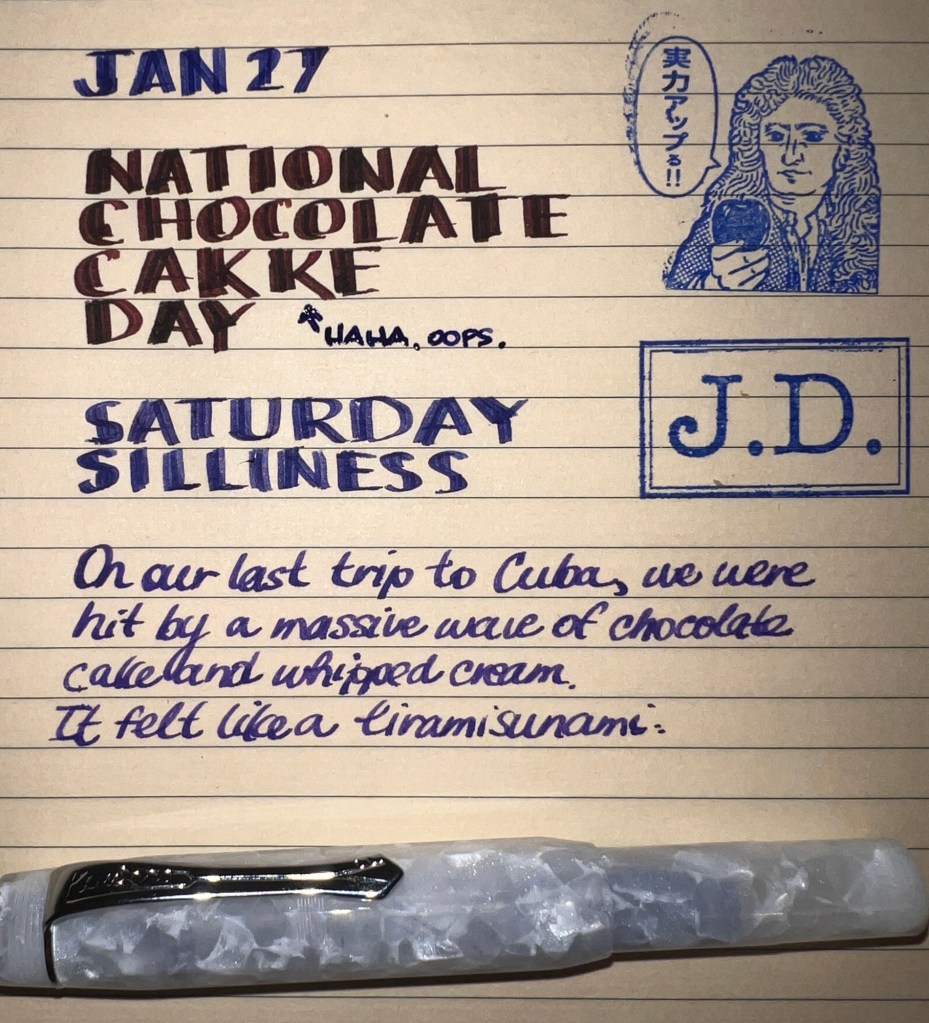 JAN 27
実力アップる!!
NATIONAL
CHOCOLATE
CAKKE
DAY
HAHA. OOPS.
J.D.
SATURDAY
SILLINESS
On our last trip to Cuba, we were
hit by a massive wave of chocolate
cake and whipped cream.
It felt like a tiramisunami.